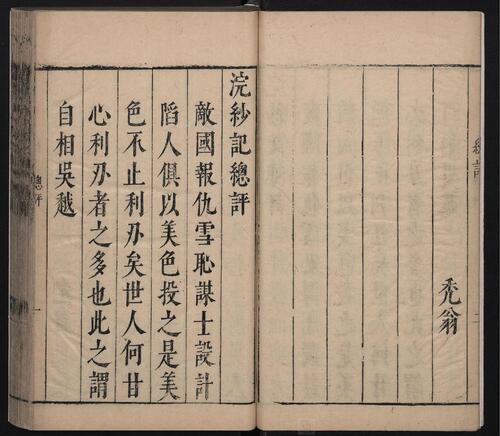 總評
二
禿翁
浣紗記總評
敵國報仇雪恥謀士設計
陷人俱以美色投之是美
色不止利刃矣世人何甘
心利刃者之多也此之謂
自相吳越
總評
一